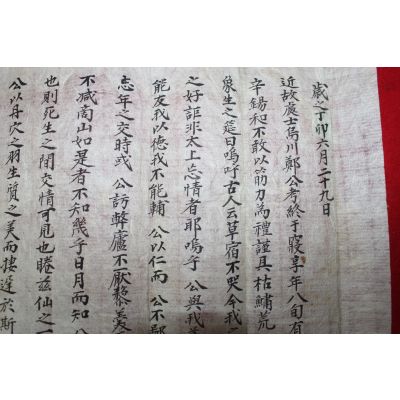 歲之丁卯六月二十九日
近故處士烏川鄭公考終于寢享年八旬有
辛錫和不敢以筋力為禮謹具枯鱐荒
象生之筵曰嗚呼古人云草宿不哭今我
之好詎非太上忘情者耶嗚乎 公與我
能友我以德我不能輔 公以仁而 公不鄙
忘年之交時或 公訪弊廬不厭藜羹
不减商山如是者不知幾乎日月而知
也則死生之間交情可見也睠玆仙之
公以丹穴之羽生質之美而棲遲於斯